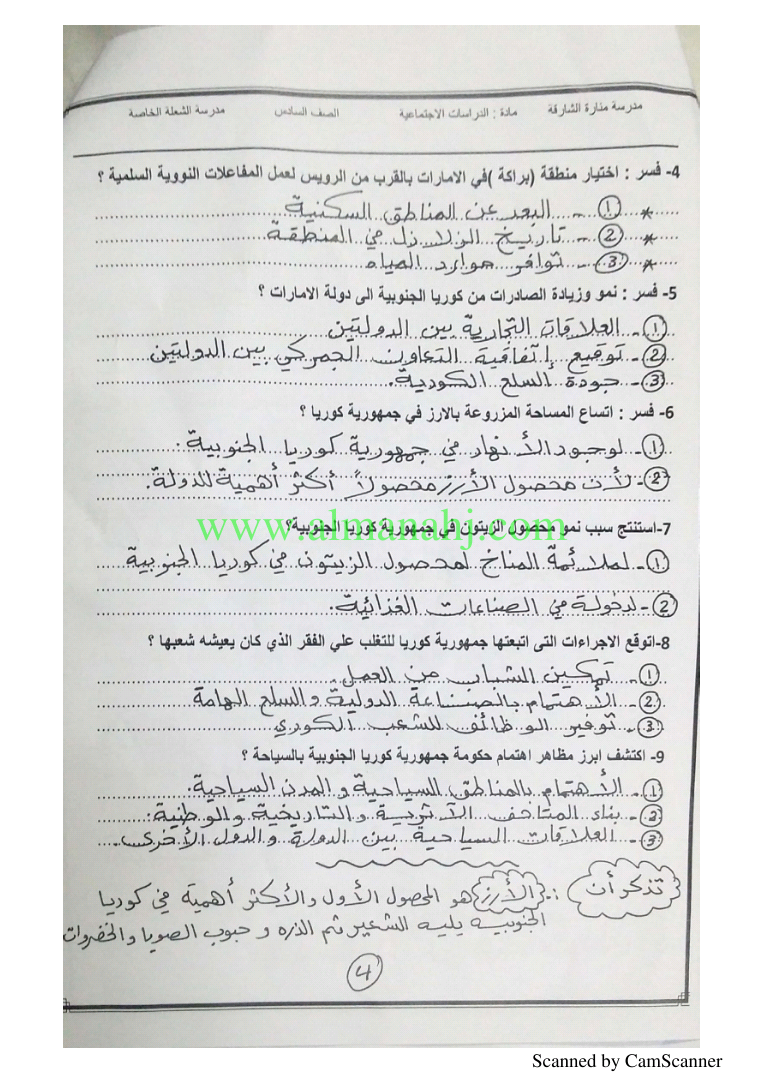 مدرسة منارة الشارقة مادة : الدراسات الاجتماعية الصف السادس مدرسة الشعلة الخاصة
4- فسر : اختيار منطقة (براكة )في الامارات بالقرب من الرويس لعمل المفاعلات النووية السلمية ؟
* ① - البعد عن المناطق السكنية
* ② - تاريخ الزلازل في المنطقة
* ③ - توافر موارد المياه
5- فسر : نمو وزيادة الصادرات من كوريا الجنوبية الى دولة الامارات ؟
① - العلاقات التجارية بين الدولتين
② - توقيع إتفاقية التعاون الجمركي بين الدولتين
③ - جودة السلع الكورية.
6- فسر : اتساع المساحة المزروعة بالارز في جمهورية كوريا ؟
① - لوجود الأنهار في جمهورية كوريا الجنوبية.
② - لأن محصول الأرز محصولاً أكثر أهمية للدولة.
www.almanahj.com
7-استنتج سبب نمو محصول الزيتون في جمهورية كوريا الجنوبية؟
① - لملائمة المناخ لمحصول الزيتون في كوريا الجنوبية
② - لدخولة في الصناعات الغذائية.
8-اتوقع الاجراءات التى اتبعتها جمهورية كوريا للتغلب علي الفقر الذي كان يعيشه شعبها ؟
① - تمكين الشباب من العمل.
② - الأهتمام بالصناعة الدولية والسلع الهامة
③ - توفير الوظائف للشعب الكوري
9- اكتشف ابرز مظاهر اهتمام حكومة جمهورية كوريا الجنوبية بالسياحة ؟
① - الأهتمام بالمناطق السياحية و المدن السياحية.
② - بناء المتاحف الأثرية والتاريخية والوطنية.
③ - العلاقات السياحية بين الدولة والدول الأخرى.
تذكر أن :- الأرز هو المحصول الأول والأكثر أهمية في كوريا
الجنوبيه يليه الشعير ثم الذره و حبوب الصويا والخضروات
4
Scanned by CamScanner